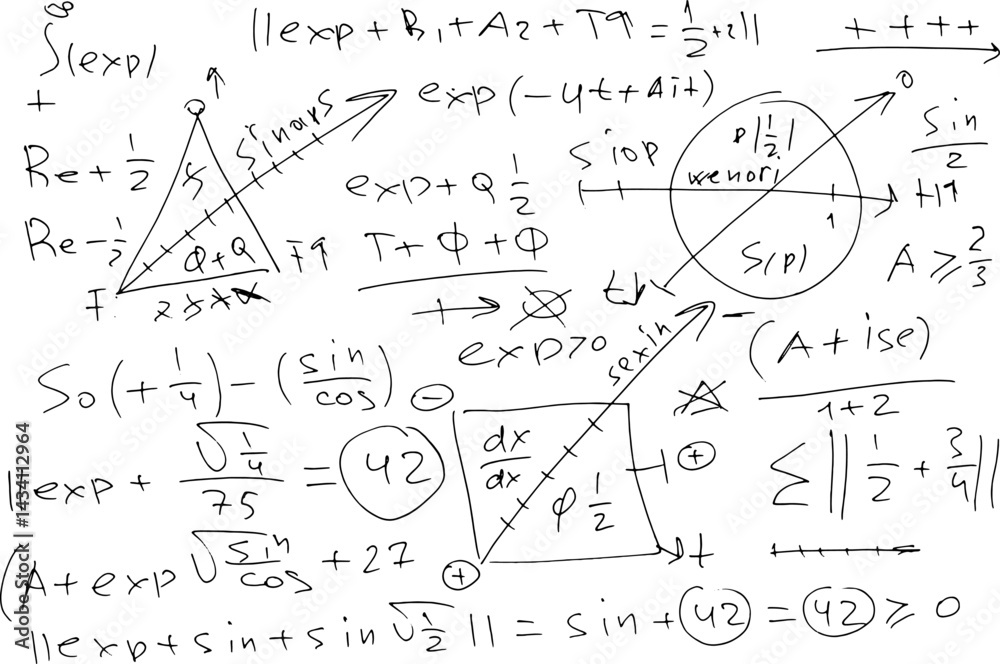 ∞
∫(exp)
||exp + B₁ + A₂ + T9 = 1/2 + 2||
+ + + +
+
exp(-4t + Ait)
sin/2
Re + 1/2
exp + Q 1/2
siop
p|1/2|
wenori
1
Re - 1/2
Φ + Q
T + Φ + Φ
S(p)
A ≥ 2/3
exp>0
sexin
(A + ise)/1+2
S₀(+1/4) - (sin/cos)
||exp + √1/4/75 = 42
dx/dx
φ 1/2
∑||1/2 + 3/4||
(A + exp √sin/cos + 27
||exp + sin + sin √1/2|| = sin + 42 = 42 ≥ 0
Adobe Stock | #1434112964